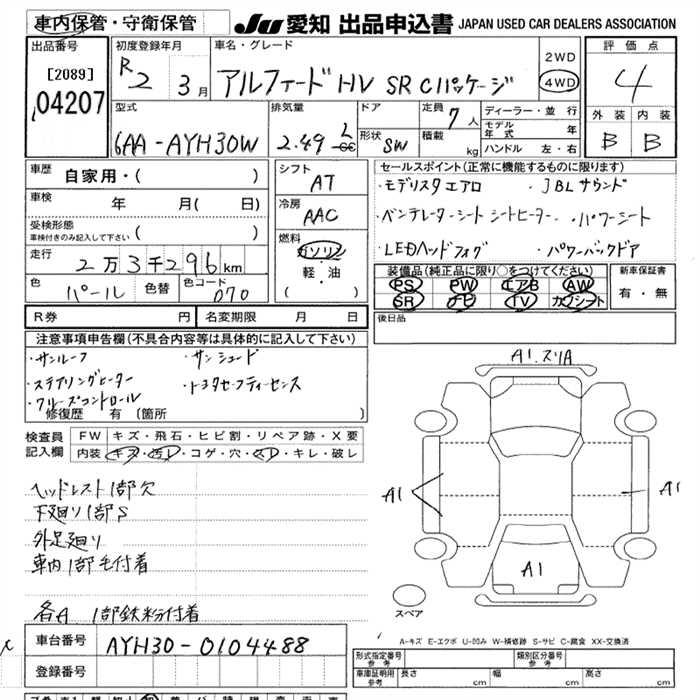 車内保管・守衛保管 JU 愛知 出品申込書 JAPAN USED CAR DEALERS ASSOCIATION
出品番号 初度登録年月 車名・グレード 2WD 評価点
[2089] R2 3月 アルファード HV SR Cパッケージ 4WD 4
04207
型式 排気量 ドア 定員 7人 ディーラー・並行 外装 内装
6AA-AYH30W 2.49 L cc 形状 SW 積載 kg モデル年式 年 B B
ハンドル 左・右
車歴 自家用・( ) シフト AT セールスポイント(正常に機能するものに限ります)
・モデリスタエアロ ・JBLサウンド
車検 年 月( 日) 冷房 AAC ・ベンチレーターシート シートヒーター ・パワーシート
受検形態 車検付きのみ記入して下さい ( ) 燃料 ガソリン ・LEDヘッドフォグ ・パワーバックドア
走行 2万3千296km 軽・油 装備品(純正品に限り○をつけてください) 新車保証書
( ) PS PW エアB AW 有・無
色 パール 色替 色コード 070 SR ナビ TV カワシート
R券 円 名変期限 月 日 後日品
注意事項申告欄(不具合内容等は具体的に記入して下さい)
・サンルーフ ・サンシェード
・ステアリングヒーター ・トヨタセーフティーセンス
・クルーズコントロール
修復歴 有 (箇所 )
A1.スリA
検査員記入欄 FW キズ・飛石・ヒビ割・リペア跡・X要
内装 キズ・汚レ・コゲ・穴・スレ・キレ・破レ
ヘッドレスト1部欠
下廻り1部S
外足廻り
車内1部毛付着
各A 1部鉄粉付着
A1 A1
A1
スペア
A-キズ E-エクボ U-凹み W-補修跡 S-サビ C-腐食 XX-交換済
車台番号 AYH30-0104488
登録番号
形式指定番号 参考 類別区分番号 参考
車庫証明用 参考 長さ cm 幅 cm 高さ cm